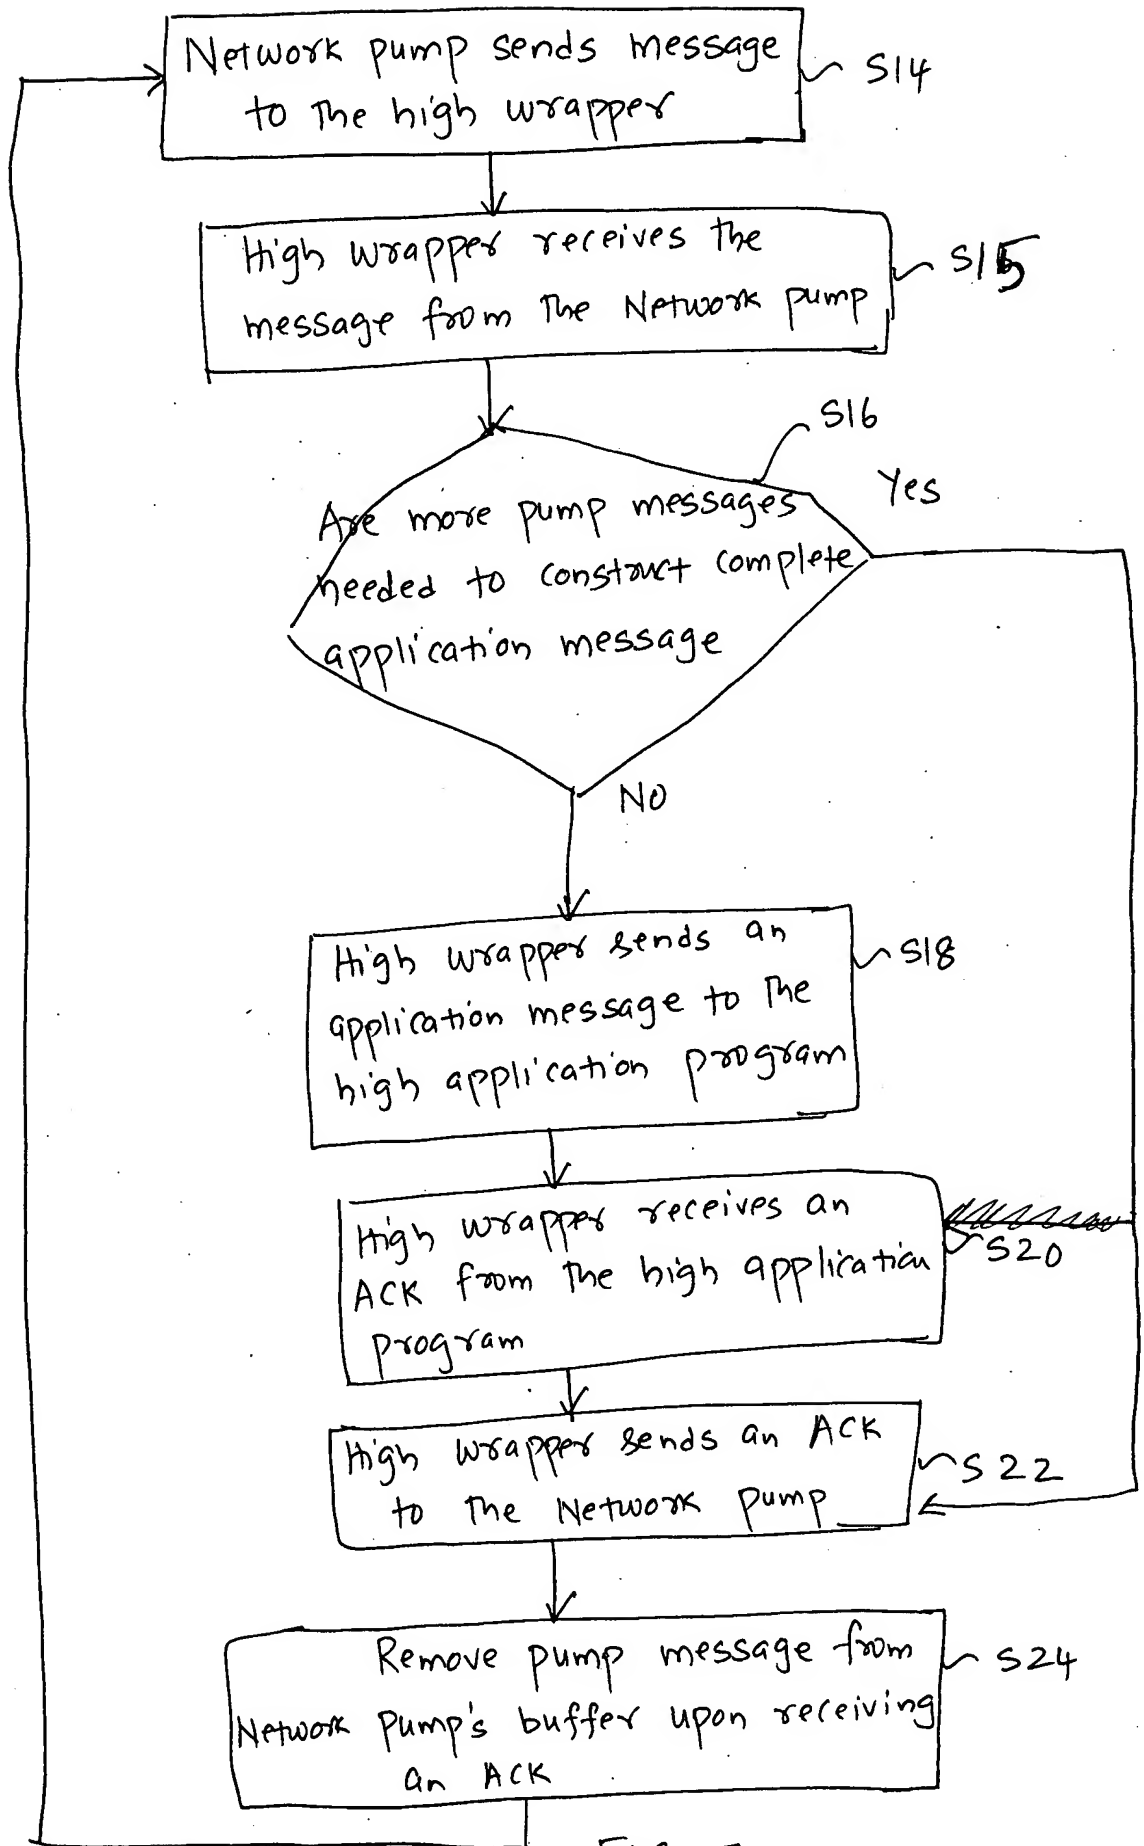 Network pump sends message
to the high wrapper
S14
High wrapper receives the
message from the Network pump
S15
S16
Yes
Are more pump messages
needed to construct complete
application message
NO
High wrapper sends an
application message to the
high application program
S18
High wrapper receives an
ACK from the high application
program
S20
High wrapper sends an ACK
to the Network pump
S22
Remove pump message from
Network pump's buffer upon receiving
an ACK
S24